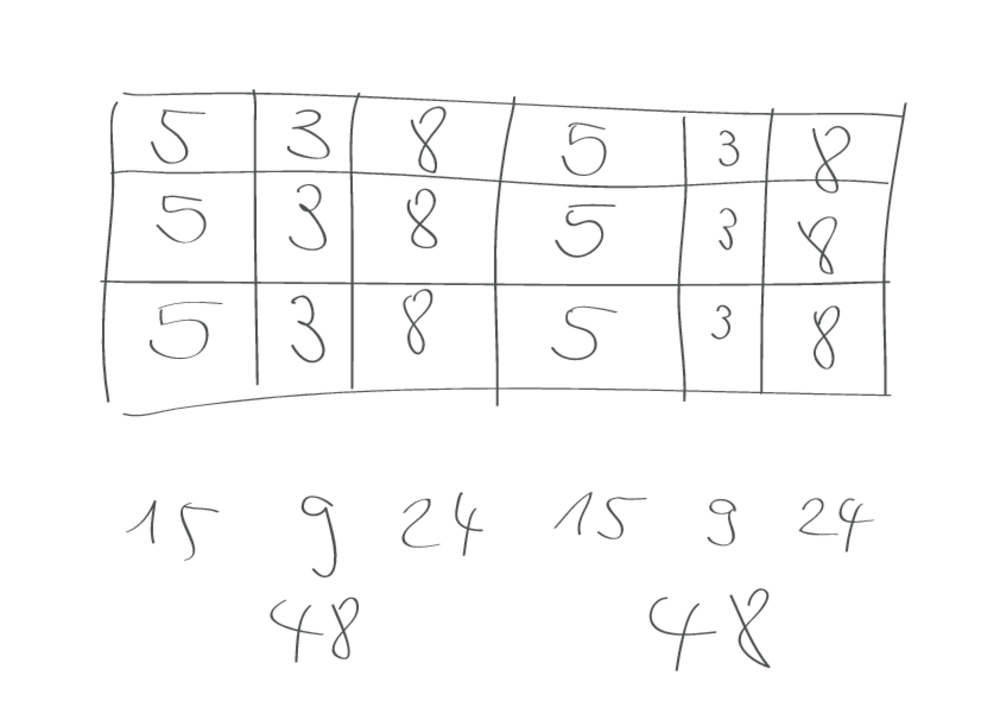 5 3 8 5 3 8
5 3 8 5 3 8
5 3 8 5 3 8
15 9 24 15 9 24
48 48